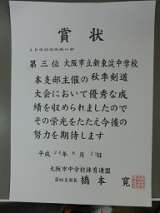 賞状
第三位 大阪市立新東淀中学校
本支部主催の秋季剣道
大会において優秀な成
績を収められましたので
その栄光をたたえ今後の
努力を期待します
平成
大阪市中学校体育連盟
橋本 寛